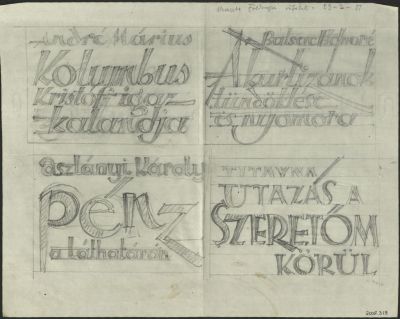 André Márius
Kolumbus
Kristóf igaz
kalandja
Balsac Honoré
A kurtizánok
tündöklése
és nyomora
aszlányi Károly
pénz
a láthatáron
TITAYNA
UTAZÁS A
SZERETŐM
KÖRÜL